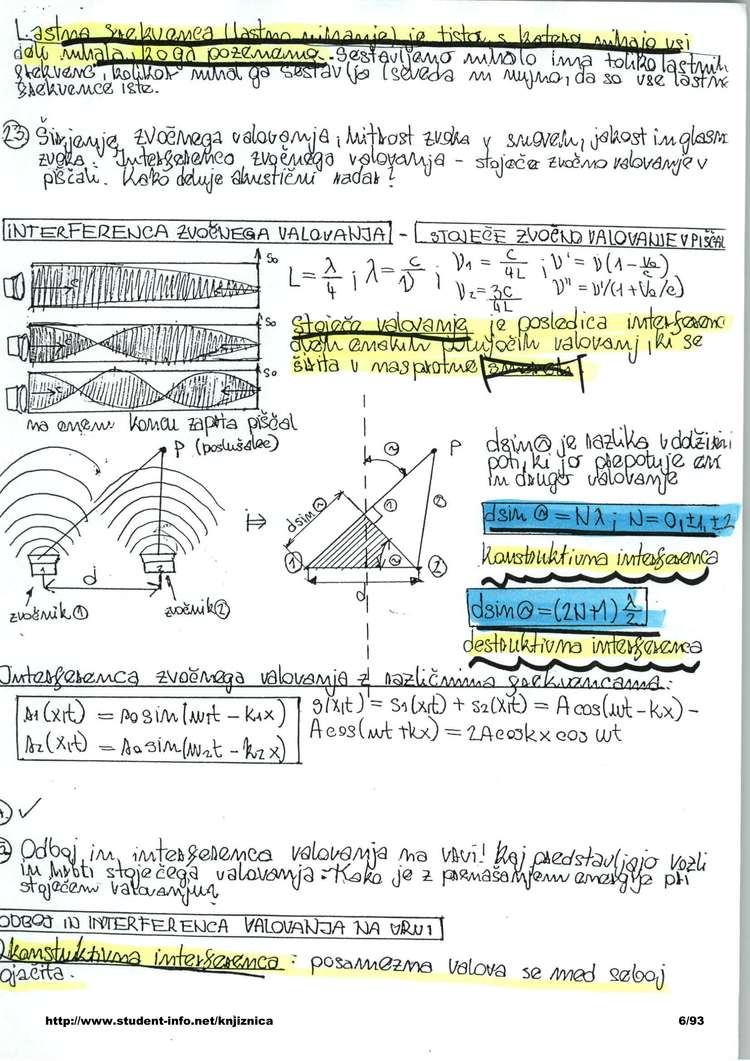 Lastna frekvenca (lastno nihanje) je tista, s katero nihajo vsi
deli nihala, ko ga poženemo. Sestavljeno nihalo ima toliko lastnih
frekvenc, kolikor nihal ga sestavlja (seveda ni nujno, da so vse lastne
frekvence iste.
23) Širjenje zvočnega valovanja, hitrost zvoka v snoveh, jakost in glasn
zvoka. Interferenca zvočnega valovanja - stoječe zvočno valovanje v
piščali. Kako deluje akustični radar?
INTERFERENCA ZVOČNEGA VALOVANJA - STOJEČE ZVOČNO VALOVANJE V PIŠČAL
S0
S0
S0
c
L = λ/4 ; λ = c/ν ; ν1 = c/4L ; ν' = ν(1 - v0/c)
ν2 = 3c/4L ν'' = ν'/(1 + v0/c)
Stoječe valovanje je posledica interferenc
dveh enakih potujočih valovanj, ki se
širita v nasprotne
na enem koncu zaprta piščal
P (poslušalec)
d
zvočnik ①
zvočnik ②
1
2
⇒
P
d sin
①
②
①
②
d
d sin Θ je razlika v dolžini
poti, ki jo prepotuje en
in drugo valovanje
d sin Θ = Nλ ; N = 0, ±1, ±2
konstruktivna interferenca
d sin Θ = (2N+1) λ/2
destruktivna interferenca
Interferenca zvočnega valovanja z različnima frekvencama:
s1(x,t) = s0 sin(ω1t - k1x)
s2(x,t) = s0 sin(ω2t - k2x)
s(x,t) = s1(x,t) + s2(x,t) = A cos(ωt - kx) -
A cos(ωt + kx) = 2A cos kx cos ωt
✓
Odboj in interferenca valovanja na vrvi! Kaj predstavljajo vozli
in hrbti stoječega valovanja. Kako je z prenašanjem energije pri
stoječem valovanju?
ODBOJ IN INTERFERENCA VALOVANJA NA VRVI
konstruktivna interferenca: posamezna valova se med seboj
ojačita.
http://www.student-info.net/knjiznica
6/93